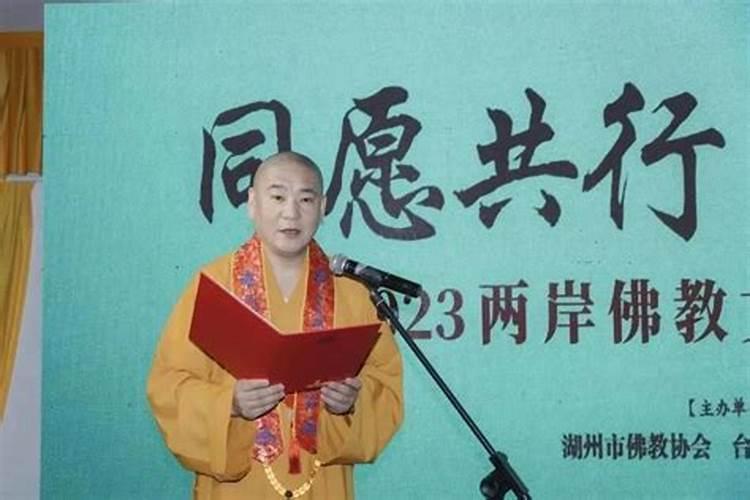 同愿共行
023两岸佛教
【主办单
湖州市佛教协会 台